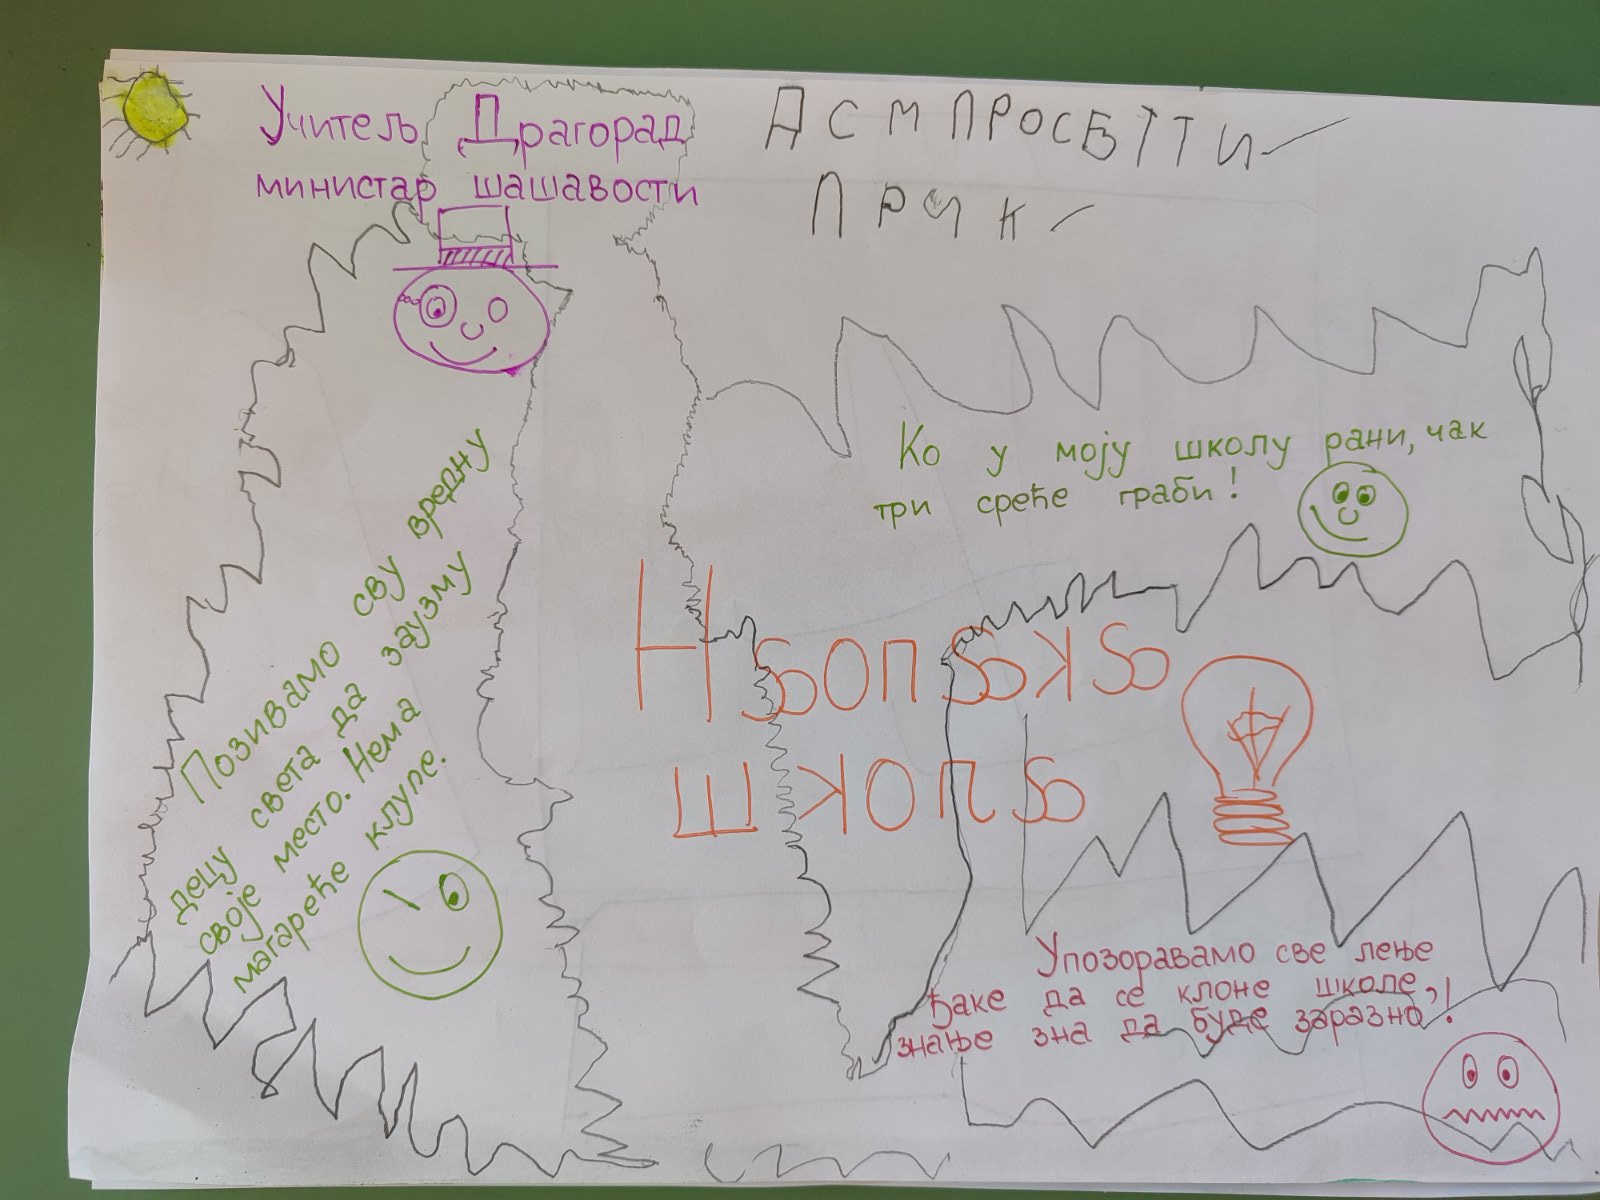 Учитељ Драгорад
министар шашавости
Ко у моју школу рани, чак
три среће граби!
Позивамо сву вредну
децу света да заузму
своје место. Нема
магареће клупе.
Наопака
школа
Упозоравамо све лење
ђаке да се клоне школе,
знање зна да буде заразно!